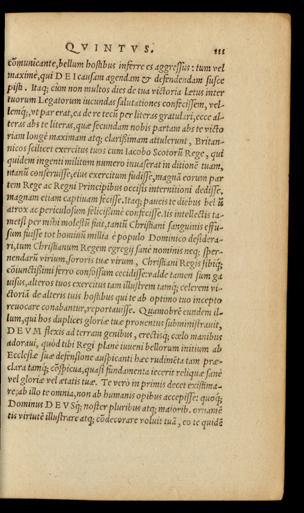 QVINTVS. 111
cõmunicante, bellum hostibus inferre es aggressus: tum vel
maximè, qui DEI causam agendam & defendendam susce
pisti. Itaq; cùm non multos dies de tua victoria lætus inter
tuorum Legatorum iucundas salutationes confecissem, vel-
lemq́; vt par erat, ea de re tecū per literas gratulari, ecce al-
teras abs te literas, quæ secundam nobis partam abs te victo
riam longè maximam atq; clarissimam attulerunt, Britan-
nicos scilicet exercitus tuos cum Iacobo Scotorū Rege, qui
quidem ingenti militum numero inuaserat in ditionē tuam,
manũ conseruisse, eius exercitum fudisse, magnā eorum par
tem Rege ac Regni Principibus occisis internitioni dedisse,
magnam etiam captiuam fecisse. Itaq; paucis te diebus bel ũ
atrox ac periculosum felicissimè confecisse. iis intellectis ta-
metsi per mihi molestũ fuit, tantū Christiani sanguinis effu-
sum fuisse tot hominū millia è populo Dominico desidera-
ri, tum Christianum Regem egregij sanè nominis neq; sper-
nendarū virium, sororis tuæ virum, Christiani Regis sibiq́;
cōiunctissimi ferro confossum cecidisse: valde tamen sum ga
uisus, alteros tuos exercitus tam illustrem tamq́; celerem vi-
ctoriā de alteris tuis hostibus qui te ab optimo tuo incepto
reuocare conabantur, reportauisse. Quamobrē eundem il-
lum, qui hos duplices gloriæ tuæ prouentus subministrauit,
DEVM flexis ad terram genibus, erectisq; cælo manibus
adoraui, quòd tibi Regi planè iuueni bellorum initium ab
Ecclesiæ suæ defensione auspicanti hæc rudimēta tam præ-
clara tamq; cōspicua, quasi fundamenta iecerit reliquæ sanè
vel gloriæ vel ætatis tuæ. Te verò in primis decet existima-
re, ab illo te omnia, non ab humanis opibus accepisse: quoq́;
Dominus DEVSq́; noster pluribus atq; maiorib. ornamē
tis virtutē illustrare atq; cōdecorare voluit tuā, eo te quidē